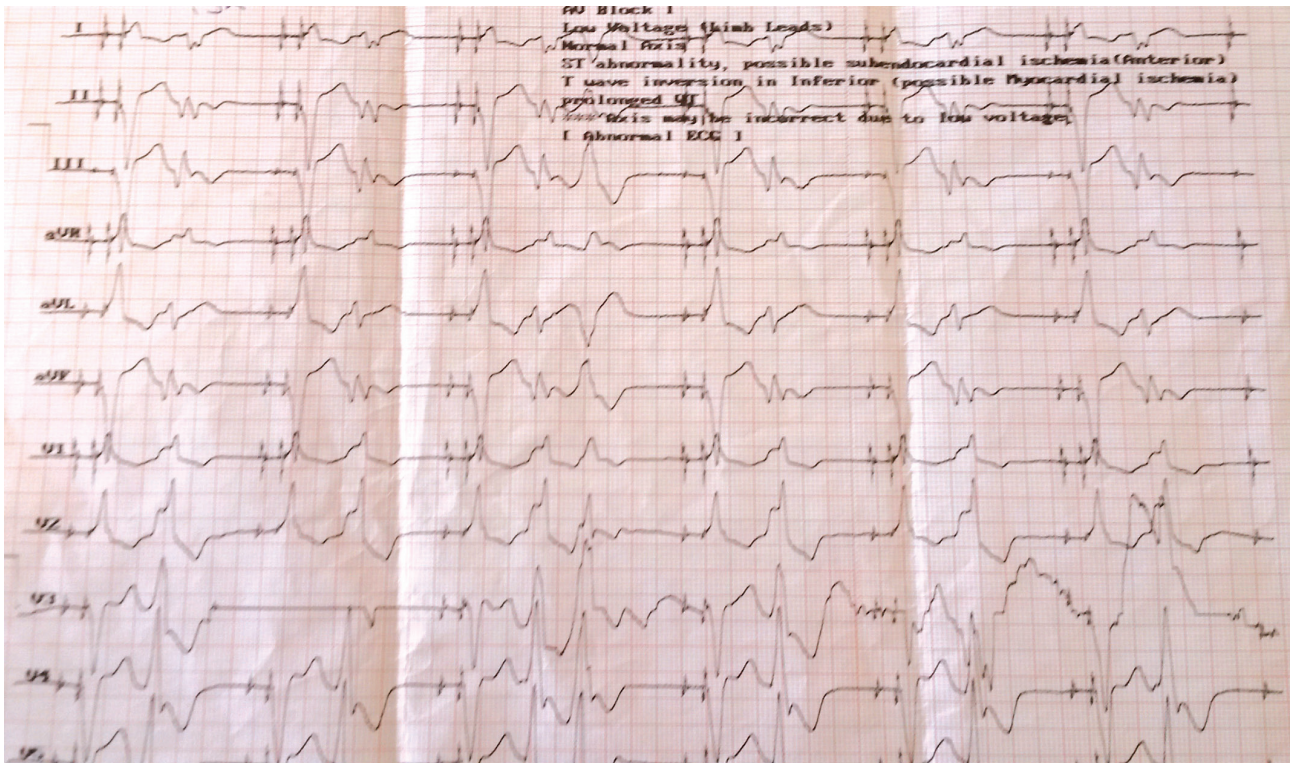 I
AV Block I
Low Voltage (Limb Leads)
Normal Axis
ST abnormality, possible subendocardial ischemia(Anterior)
II
T wave inversion in Inferior (possible Myocardial ischemia)
prolonged QT
Axis may be incorrect due to low voltage
[ Abnormal ECG ]
III
aVR
aVL
aVF
V1
V2
V3